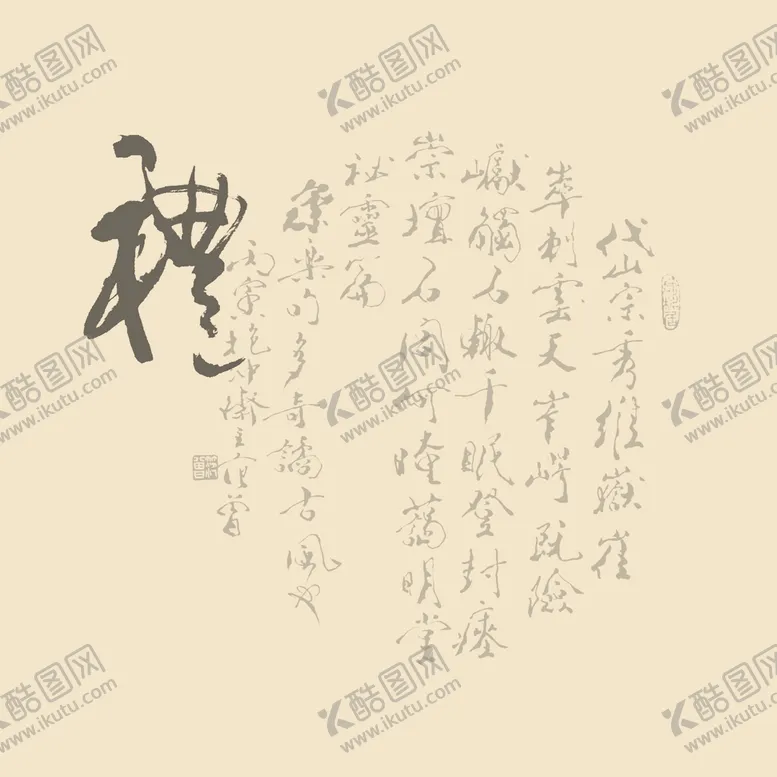 岱宗秀維嶽崔
崒刺雲天岝崿既險
巘觸石輙千眠登封瘞
崇壇石閭何晻藹明堂
祕靈篇
康樂句多奇譎古風也
丙寅抱沖齋主范曾
禮
酷图网
www.ikutu.com
酷图网
www.ikutu.com
酷图网
www.ikutu.com
酷图网
www.ikutu.com
酷图网
www.ikutu.com
酷图网
www.ikutu.com
酷图网
www.ikutu.com
酷图网
www.ikutu.com
酷图网
www.ikutu.com